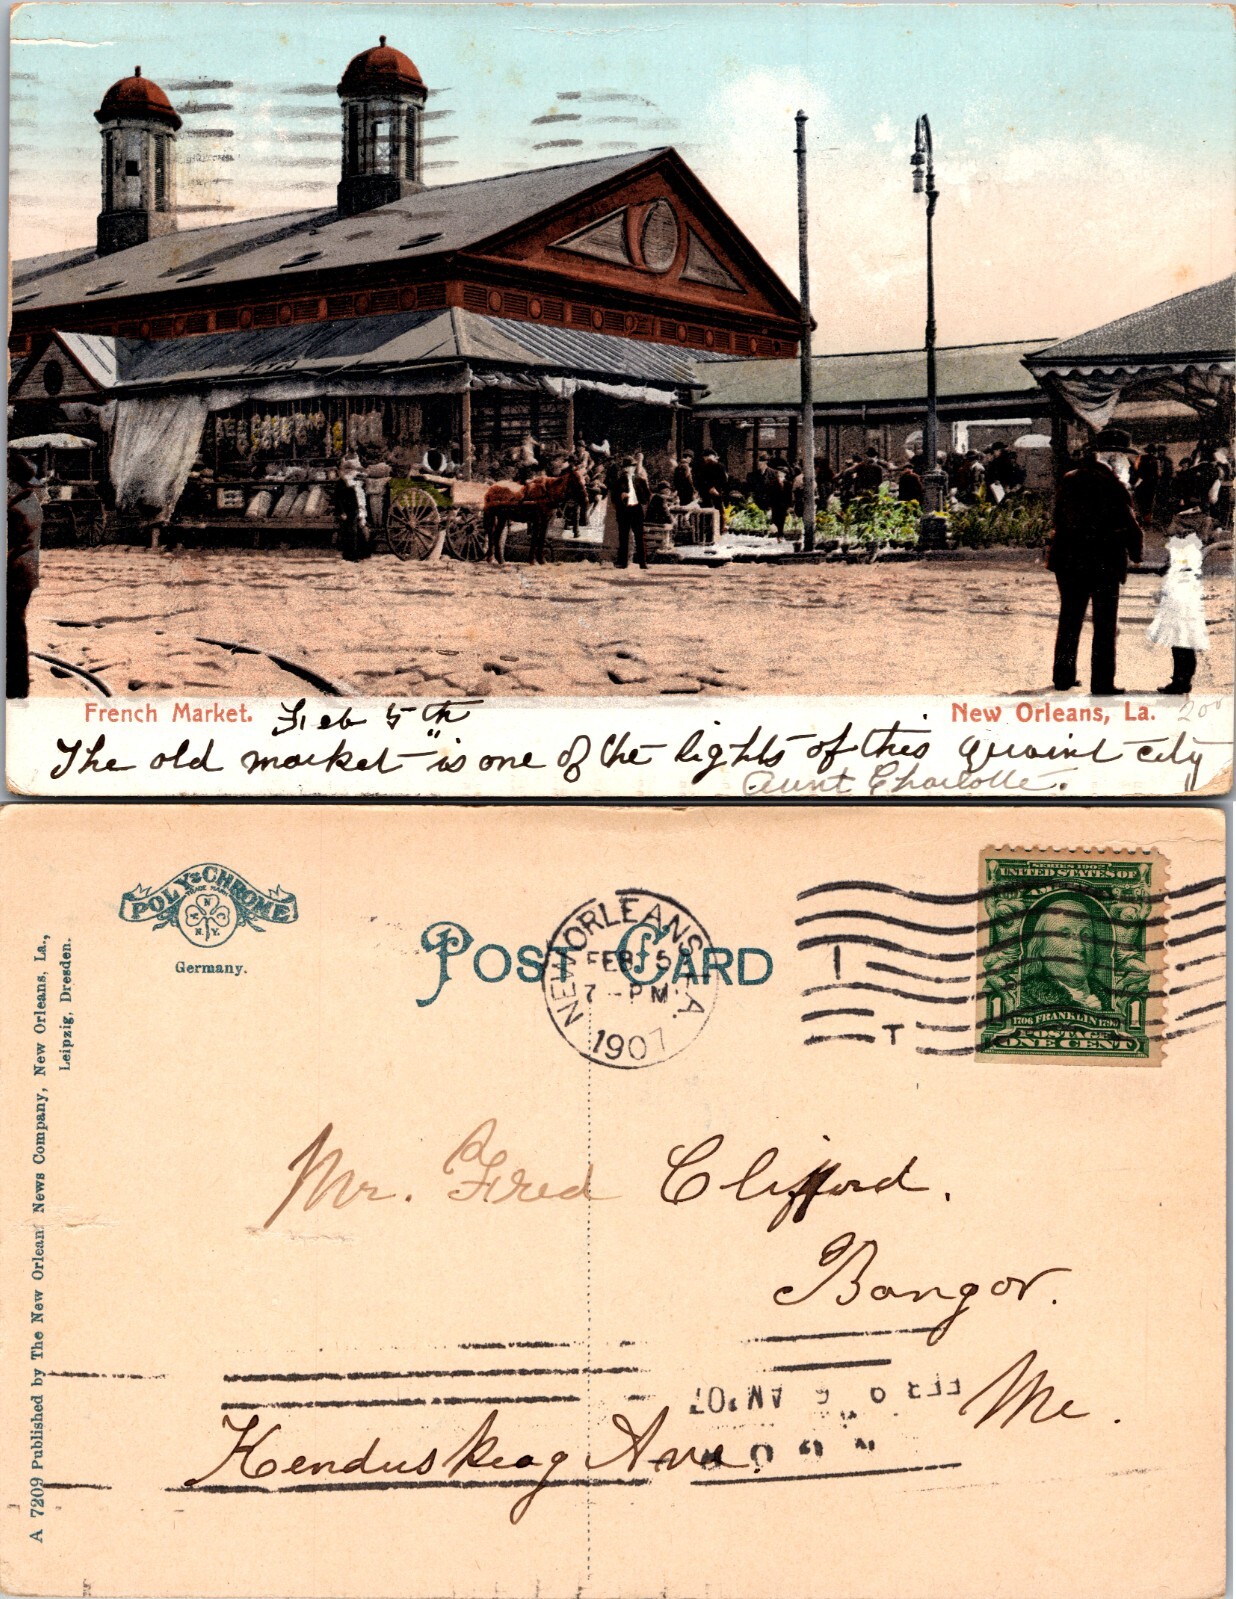 French Market.
New Orleans, La.
200
Feb 5th
The old market "is one of the lights of this quaint city"
Aunt Charlotte.
POLY-CHROME
TRADE MARK
A N C
N.Y.
Germany.
POST CARD
NEW ORLEANS, LA.
FEB 5
7 - PM
1907
T
SERIES 1902
UNITED STATES OF
AMERICA
1706 FRANKLIN 1790
1 1
POSTAGE
ONE CENT
Mr. Fred Clifford.
Bangor.
Me.
Kenduskeag Ave.
AM '07
A 7209 Published by The New Orleans News Company, New Orleans, La.,
Leipzig, Dresden.